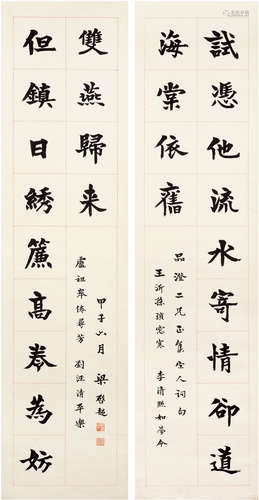 試憑他流水寄情卻道
海棠依舊
品澄二兄正集宋人詞句
王沂孫瑣窗寒 李清照如夢令
但鎮日綉簾高卷為妨
雙燕歸来
盧祖皋倦尋芳 劉汪清平樂
甲子六月 梁啟超